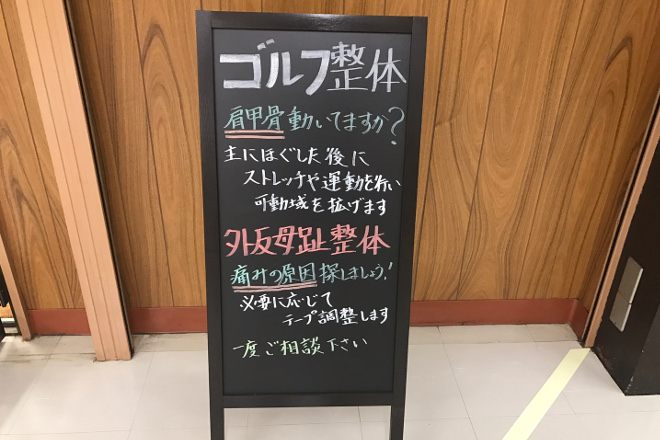 ゴルフ整体
肩甲骨動いてますか?
主にほぐした後に
ストレッチや運動を行い
可動域を拡げます
外反母趾整体
痛みの原因探しましょう!
必要に応じて
テープ調整します
一度ご相談下さい